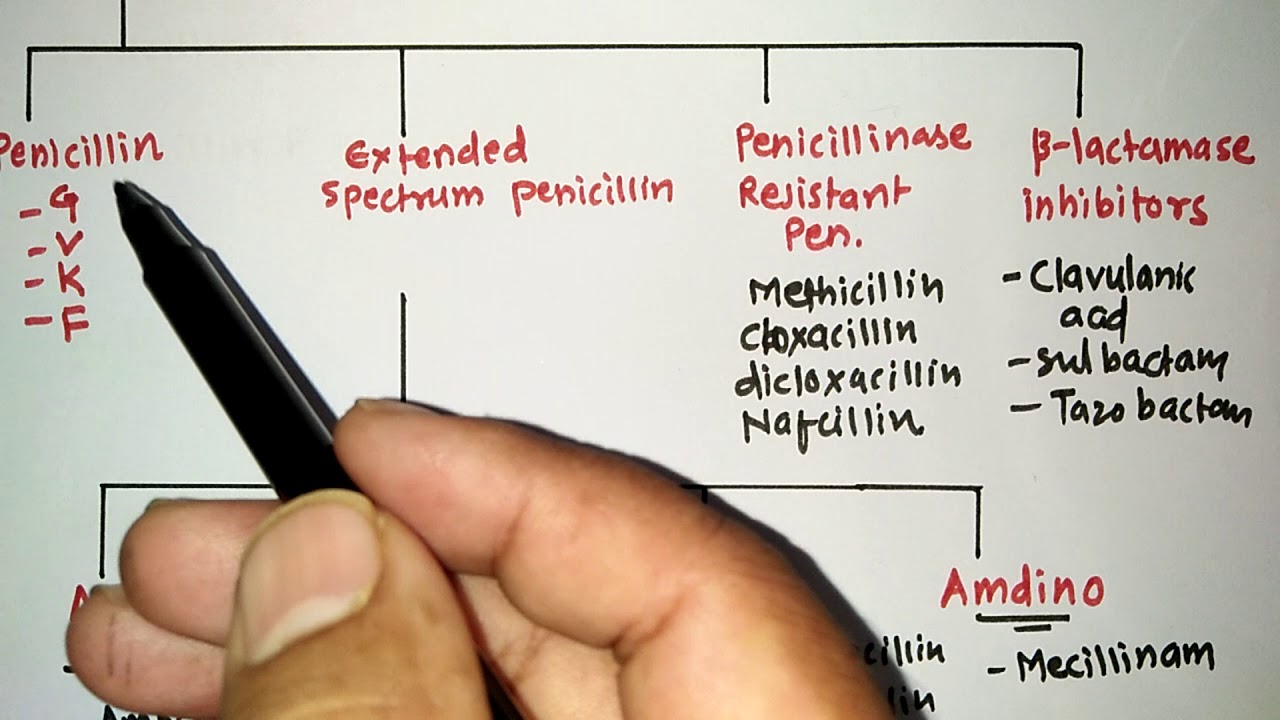 Penicillin
- G
- V
- K
- F
Extended
spectrum penicillin
Penicillinase
Resistant
Pen.
Methicillin
cloxacillin
dicloxacillin
Nafcillin
β-lactamase
inhibitors
- Clavulanic
acid
- sulbactam
- Tazobactam
Amdino
- Mecillinam